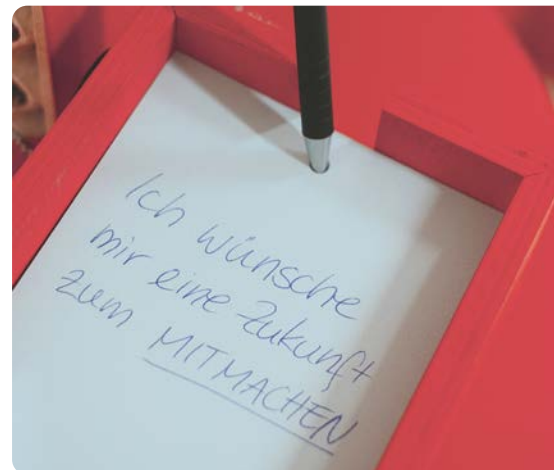 Ich wünsche
mir eine Zukunft
zum MITMACHEN